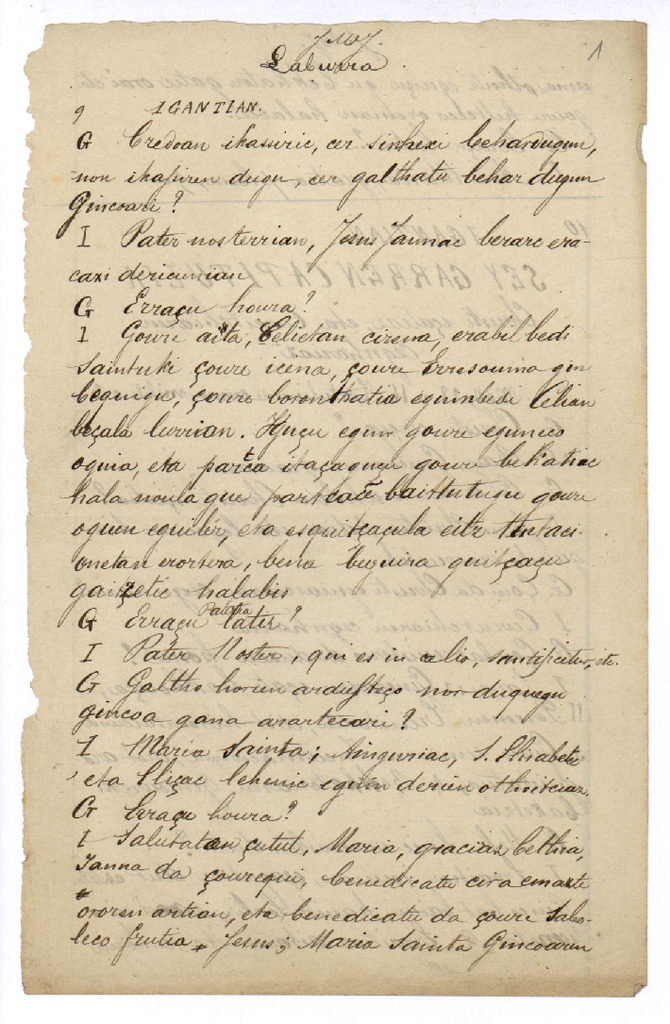 JMJ.
Laburra
1
9 IGANTIAN.
G Credoan ikassiric, cer sinhexi behardugun,
non ikasiren dugu, cer galthatu behar dugun
Gincoari?
I Pater nosterrian, Jesus Jaunac berarc era-
caxi dericunian
G Erraçu houra?
I Goure aita, Celietan cirena, erabil bedi
saintuki çoure icena, çoure Erresouma gin
bequigu, çoure boronthatia eguinbedi Celian
beçala lurrian. Iguçu egun goure eguneco
oguia, eta parca itçaguçu goure bekatiac
hala noula guc parcacen baitutugu goure
oguen eguiler, eta esguitçaçula eitz tentaci-
onetan erortera, bena beguira guitçaçu
gaizetic halabiz
G Erraçu Pater?
I Pater Noster, qui es in cœlis, santificetur, etc.
G Galtho horien ardiesteco nor duquegu
gincoa gana arartecari?
I Maria Sainta; Ainguriac, S. Elisabete
eta Elizac lehenic eguin derien othoitciaz.
G Erraçu houra?
I Salutatan çutut, Maria, graciaz bethia,
Janna da çourequi, benedicatu cira emazte
ororen artian, eta benedicatu da çoure sabe-
leco frutia, Jesus; Maria Sainta Gincoaren